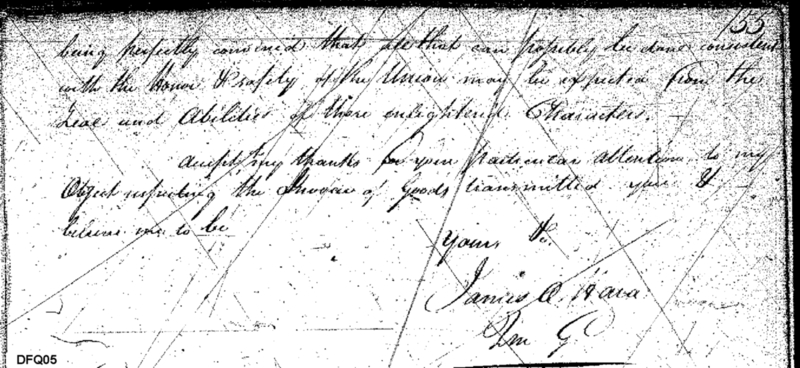 155
being perfectly convinced that all that can possibly be done consistent
with the Honor & safety of the Union may be expected from the
Zeal and Abilities of these enlightened Characters.
Accept my thanks for your particular attention to my
Object respecting the Invoice of Goods transmitted you &
believe me to be
Yours &c.
James O Hara
Qm G
DFQ05